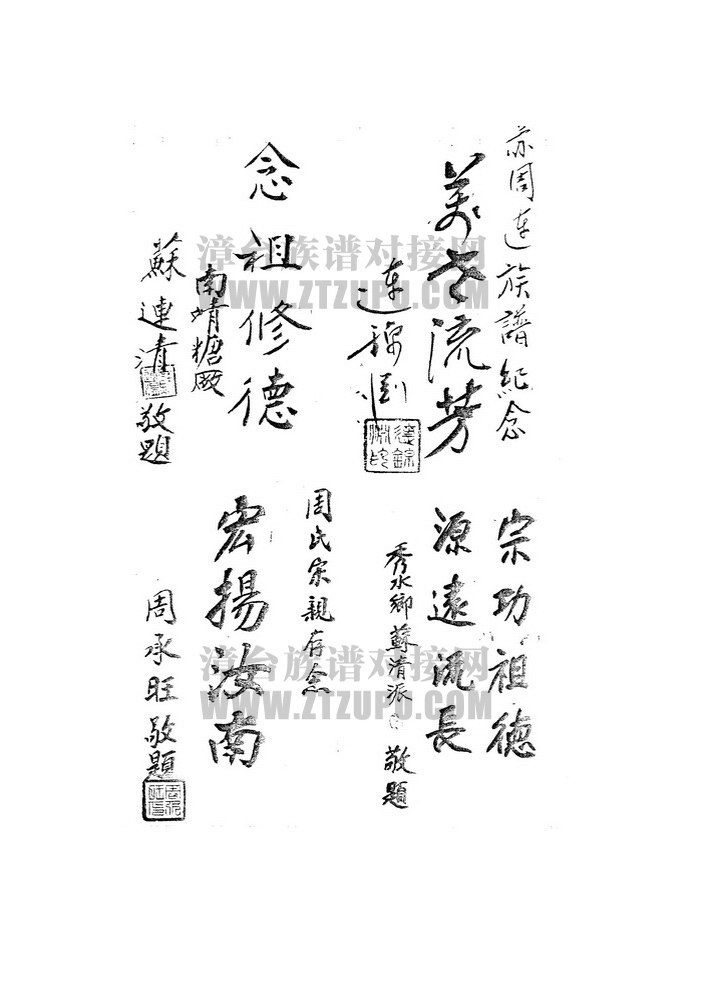 苏周連族譜紀念
流芳
連錦
念祖修德
南靖糖廠
蘇連清
敬題
宗功祖德
源遠流長
秀水鄉蘇清派
敬題
周氏宗親存念
宏揚汝南
周承旺敬題
漳台族谱对接网
WWW.ZTZUPU.COM
漳台族谱对接网
WWW.ZTZUPU.COM